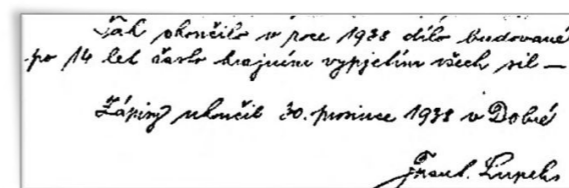 Tak skončilo v roce 1938 dílo budované
po 14 let často krajním vypjetím všech sil —
Zápisy ukončil 30. prosince 1938 v Dobré